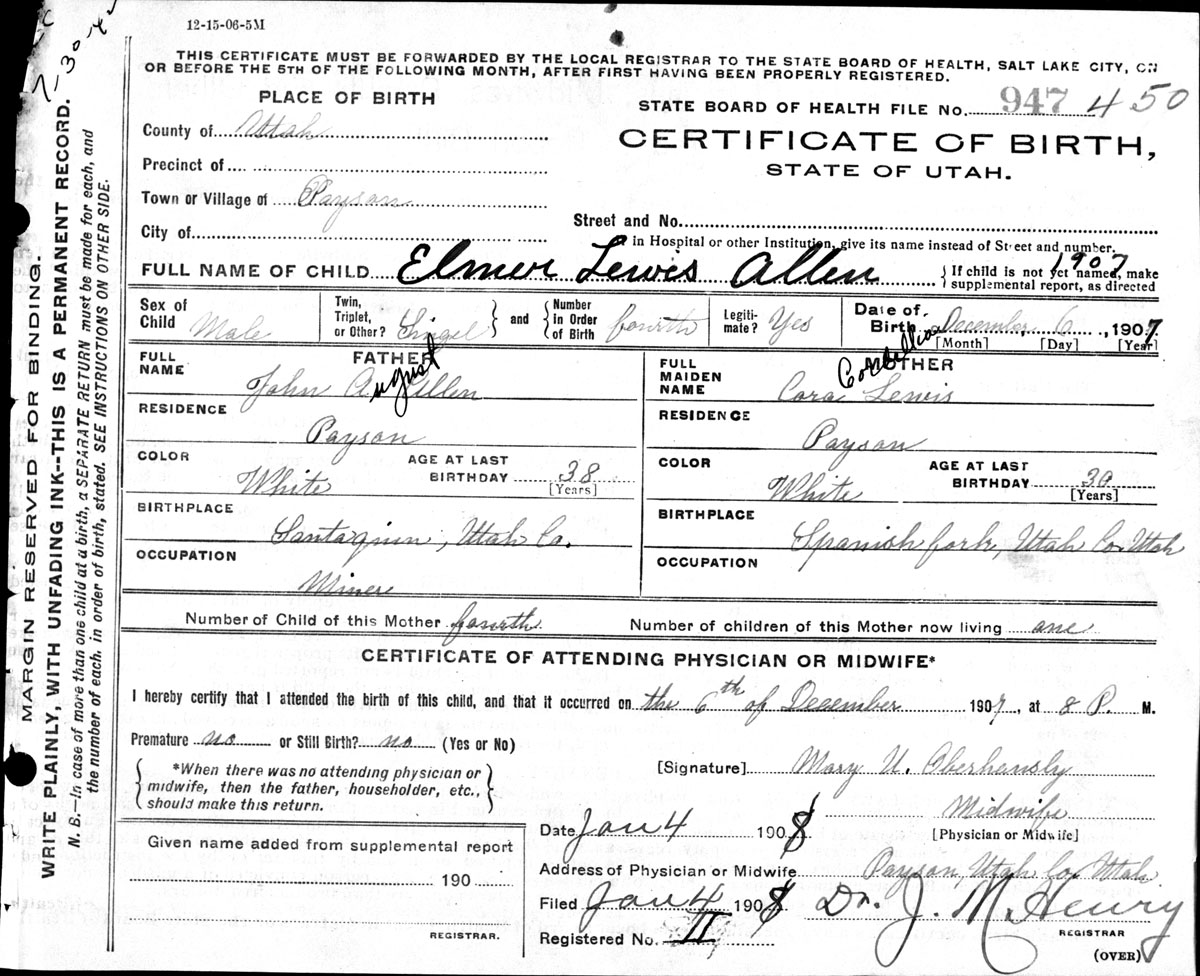 12-15-06-5M
7-30-
THIS CERTIFICATE MUST BE FORWARDED BY THE LOCAL REGISTRAR TO THE STATE BOARD OF HEALTH, SALT LAKE CITY, ON
OR BEFORE THE 5TH OF THE FOLLOWING MONTH, AFTER FIRST HAVING BEEN PROPERLY REGISTERED.
MARGIN RESERVED FOR BINDING.
WRITE PLAINLY, WITH UNFADING INK--THIS IS A PERMANENT RECORD.
N. B.—In case of more than one child at a birth, a SEPARATE RETURN must be made for each, and
the number of each, in order of birth, stated. SEE INSTRUCTIONS ON OTHER SIDE.
PLACE OF BIRTH
STATE BOARD OF HEALTH FILE No. 947 450
County of Utah
CERTIFICATE OF BIRTH,
Precinct of
STATE OF UTAH.
Town or Village of Payson
Street and No.
City of
in Hospital or other Institution, give its name instead of Street and number.
FULL NAME OF CHILD Elmer Lewis Allen 1907
{If child is not yet named, make
supplemental report, as directed
Sex of Child Male
Twin, Triplet, or Other? Singel } and { Number in Order of Birth fourth
Legiti-mate? Yes
Date of Birth December 6, 1907
[Month] [Day] [Year]
FATHER
MOTHER
FULL NAME John A. August Allen
FULL MAIDEN NAME Cora Lewis
RESIDENCE Payson
RESIDENCE Payson
COLOR White AGE AT LAST BIRTHDAY 38 [Years]
COLOR White AGE AT LAST BIRTHDAY 30 [Years]
BIRTHPLACE Santaquin, Utah Co.
BIRTHPLACE Spanish fork, Utah Co. Utah
OCCUPATION Miner
OCCUPATION
Number of Child of this Mother fourth Number of children of this Mother now living one
CERTIFICATE OF ATTENDING PHYSICIAN OR MIDWIFE*
I hereby certify that I attended the birth of this child, and that it occurred on the 6th of December 1907, at 8 P. M.
Premature no or Still Birth? no (Yes or No)
*When there was no attending physician or
midwife, then the father, householder, etc.,
should make this return.
[Signature] Mary U. Oberhansly
Midwife
Date Jan 4 1908 [Physician or Midwife]
Given name added from supplemental report
190
REGISTRAR.
Address of Physician or Midwife Payson, Utah Co. Utah
Filed Jan 4 1908 Dr. J. McHenry
REGISTRAR
Registered No. II
(OVER)